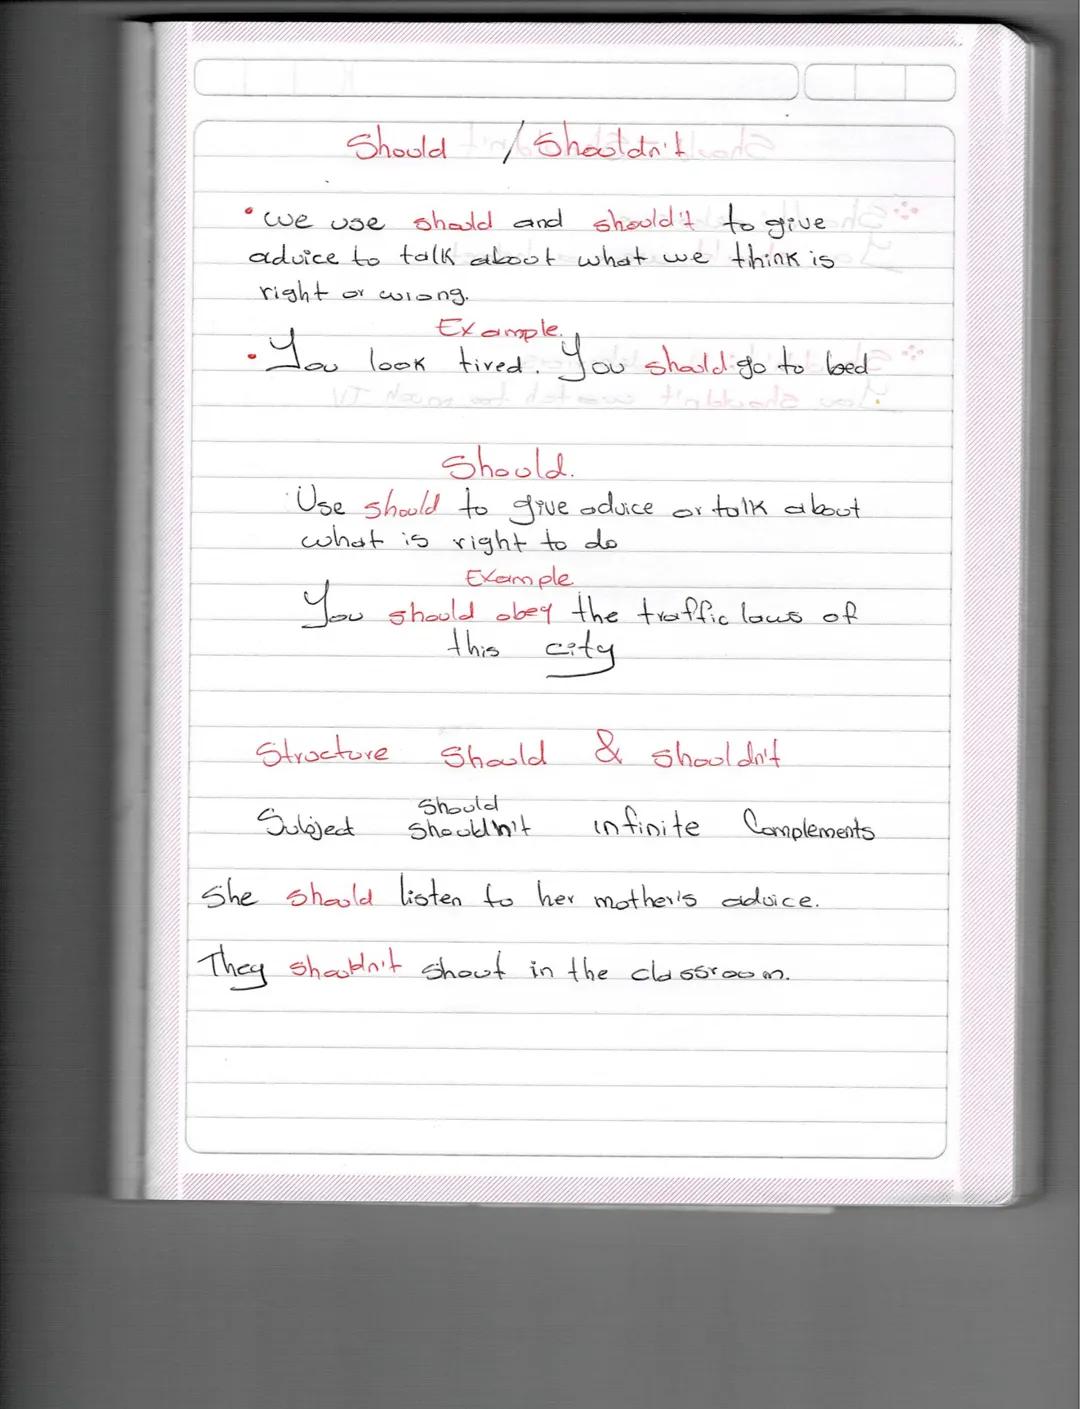 Should / Shouldn't
• we use should and should't to give
advice to talk about what we think is
right or wrong.
Example.
• You look tired. You should go to bed
Should.
Use should to give advice or talk about
what is right to do
Example
You should obey the traffic laws of
this city
Structure Should & shouldn't
Should
Subject shouldn't infinite Complements
She should listen to her mother's advice.
They shouldn't shout in the classroom.